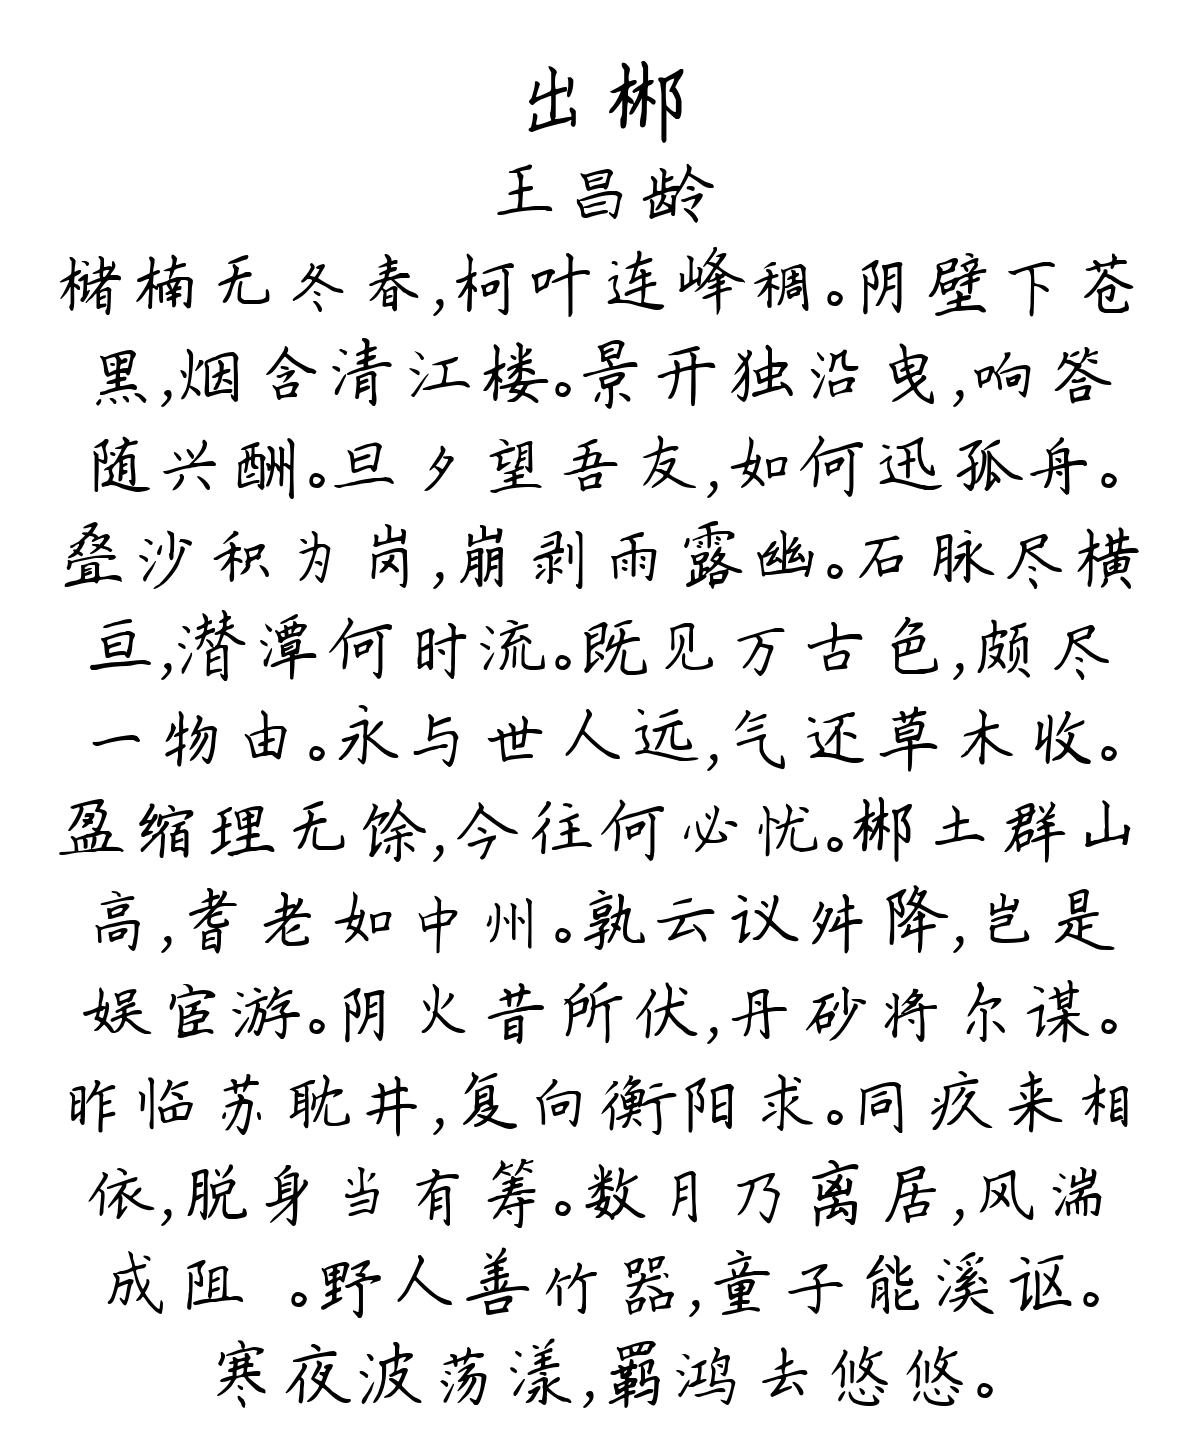 出郴
王昌龄
槠楠无冬春,柯叶连峰稠。阴壁下苍
黑,烟含清江楼。景开独沿曳,响答
随兴酬。旦夕望吾友,如何迅孤舟。
叠沙积为岗,崩剥雨露幽。石脉尽横
亘,潜潭何时流。既见万古色,颇尽
一物由。永与世人远,气还草木收。
盈缩理无馀,今往何必忧。郴土群山
高,耆老如中州。孰云议舛降,岂是
娱宦游。阴火昔所伏,丹砂将尔谋。
昨临苏耽井,复向衡阳求。同疚来相
依,脱身当有筹。数月乃离居,风湍
成阻 。野人善竹器,童子能溪讴。
寒夜波荡漾,羁鸿去悠悠。